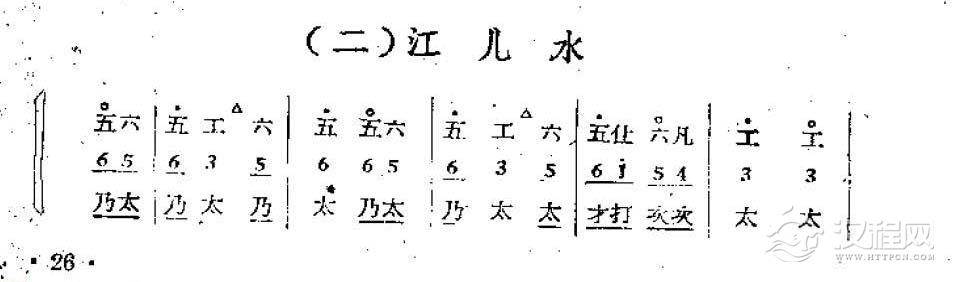 （二）江儿水
五六 | 五 工 六 | 五 五六 | 五 工 六 | 五仕 六凡 | 工 工 |
6 5 | 6 3 5 | 6 6 5 | 6 3 5 | 6 i 5 4 | 3 3 |
乃太 | 乃 太 乃 | 太 乃太 | 乃 太 太 | 才打 次次 | 太 太 |
· 26 ·
汉程网
WWW.HTTPCN.COM